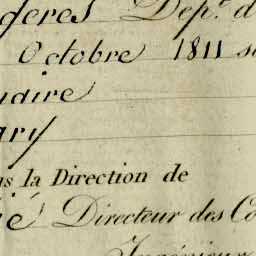 deres Dep.t d
Octobre 1811 s
daire
ary
ns la Direction de
ié Directeur des Co
Ingénieur